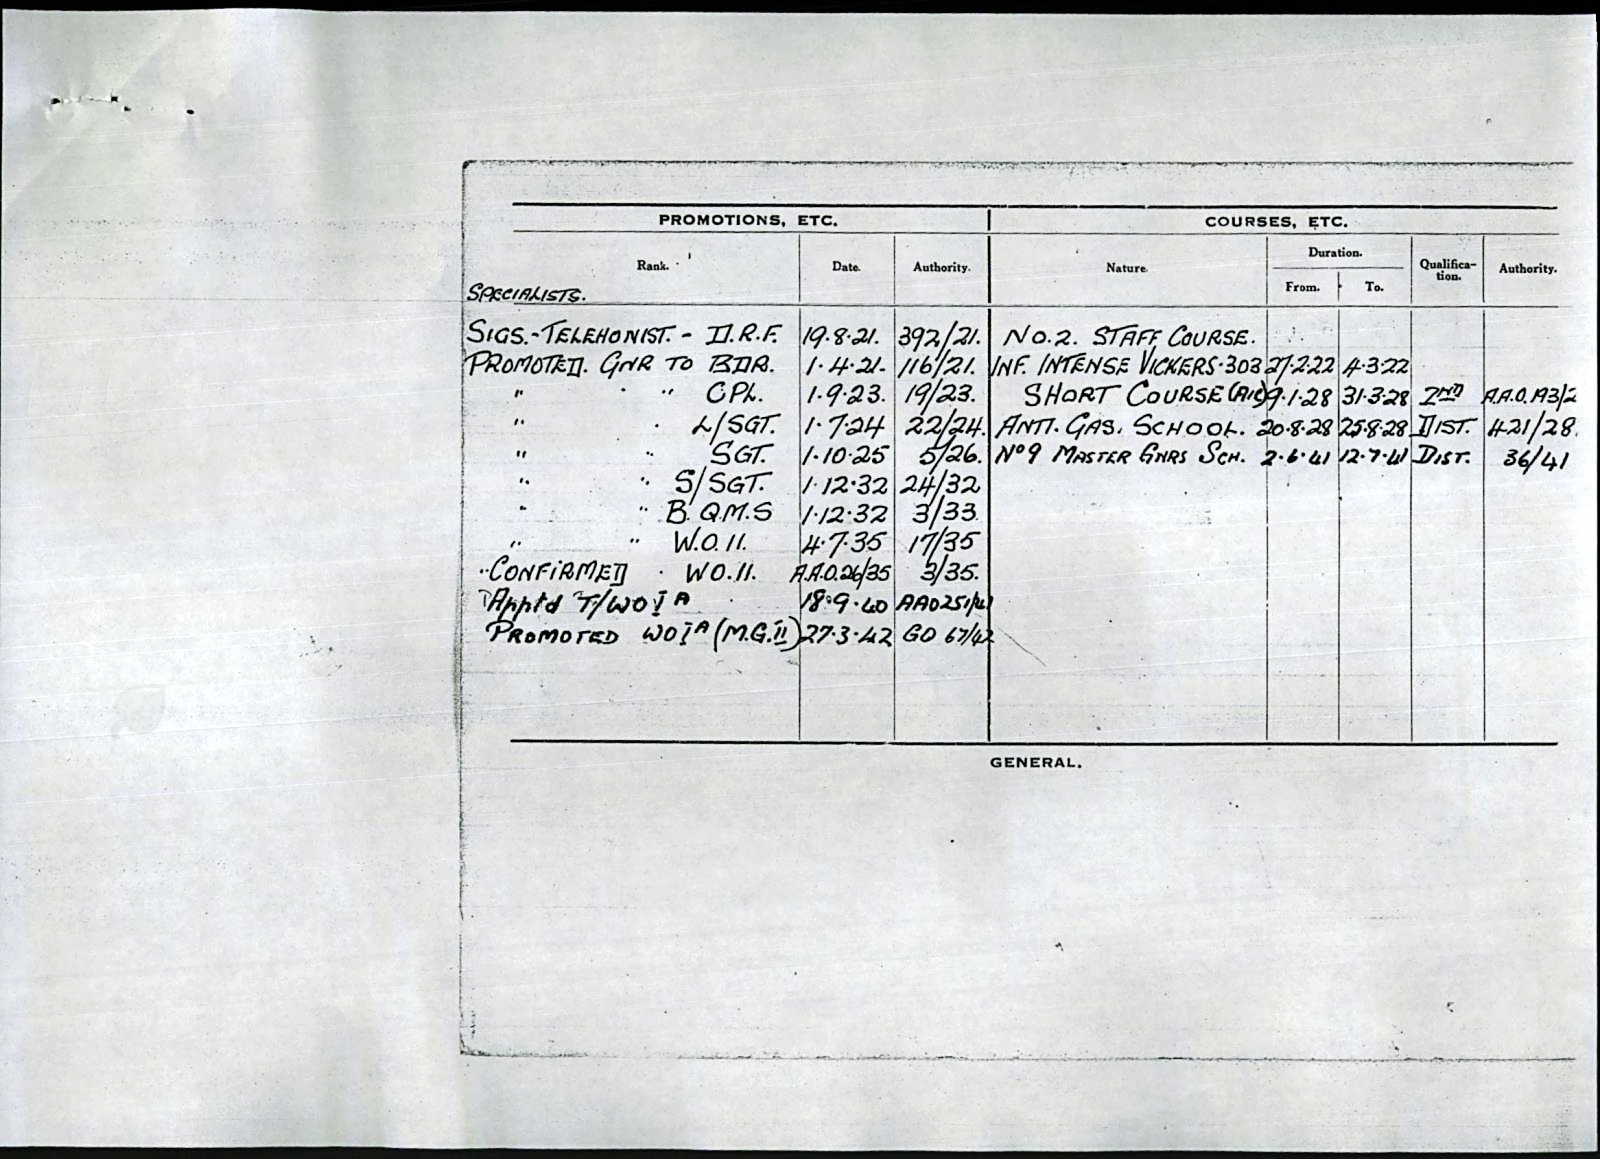 PROMOTIONS, ETC. COURSES, ETC.
Rank. Date. Authority. Nature. Duration. Qualifica-tion. Authority.
From. To.
SPECIALISTS.
SIGS.-TELEHONIST.- D.R.F. 19.8.21. 392/21. NO.2. STAFF COURSE.
PROMOTED. GNR TO BDR. 1.4.21. 116/21. INF. INTENSE VICKERS.303 27.2.22 4.3.22
" " CPL. 1.9.23. 19/23. SHORT COURSE 9.1.28 31.3.28 2ND A.A.O.
" . L/SGT. 1.7.24 22/24. ANTI. GAS. SCHOOL. 20.8.28 25.8.28 DIST. 421/28.
" " SGT. 1.10.25 5/26. No 9 MASTER GNRS SCH. 2.6.41 12.7.41 DIST. 36/41
" " S/SGT. 1.12.32 24/32
" " B.Q.M.S 1.12.32 3/33
" " W.O.II. 4.7.35 17/35
" CONFIRMED . WO.II. A.A.O.26/35 3/35.
Apptd T/WO I A 18.9.40 AAO251/41
PROMOTED WO I A (M.G.II) 27.3.42 GO 67/42
GENERAL.